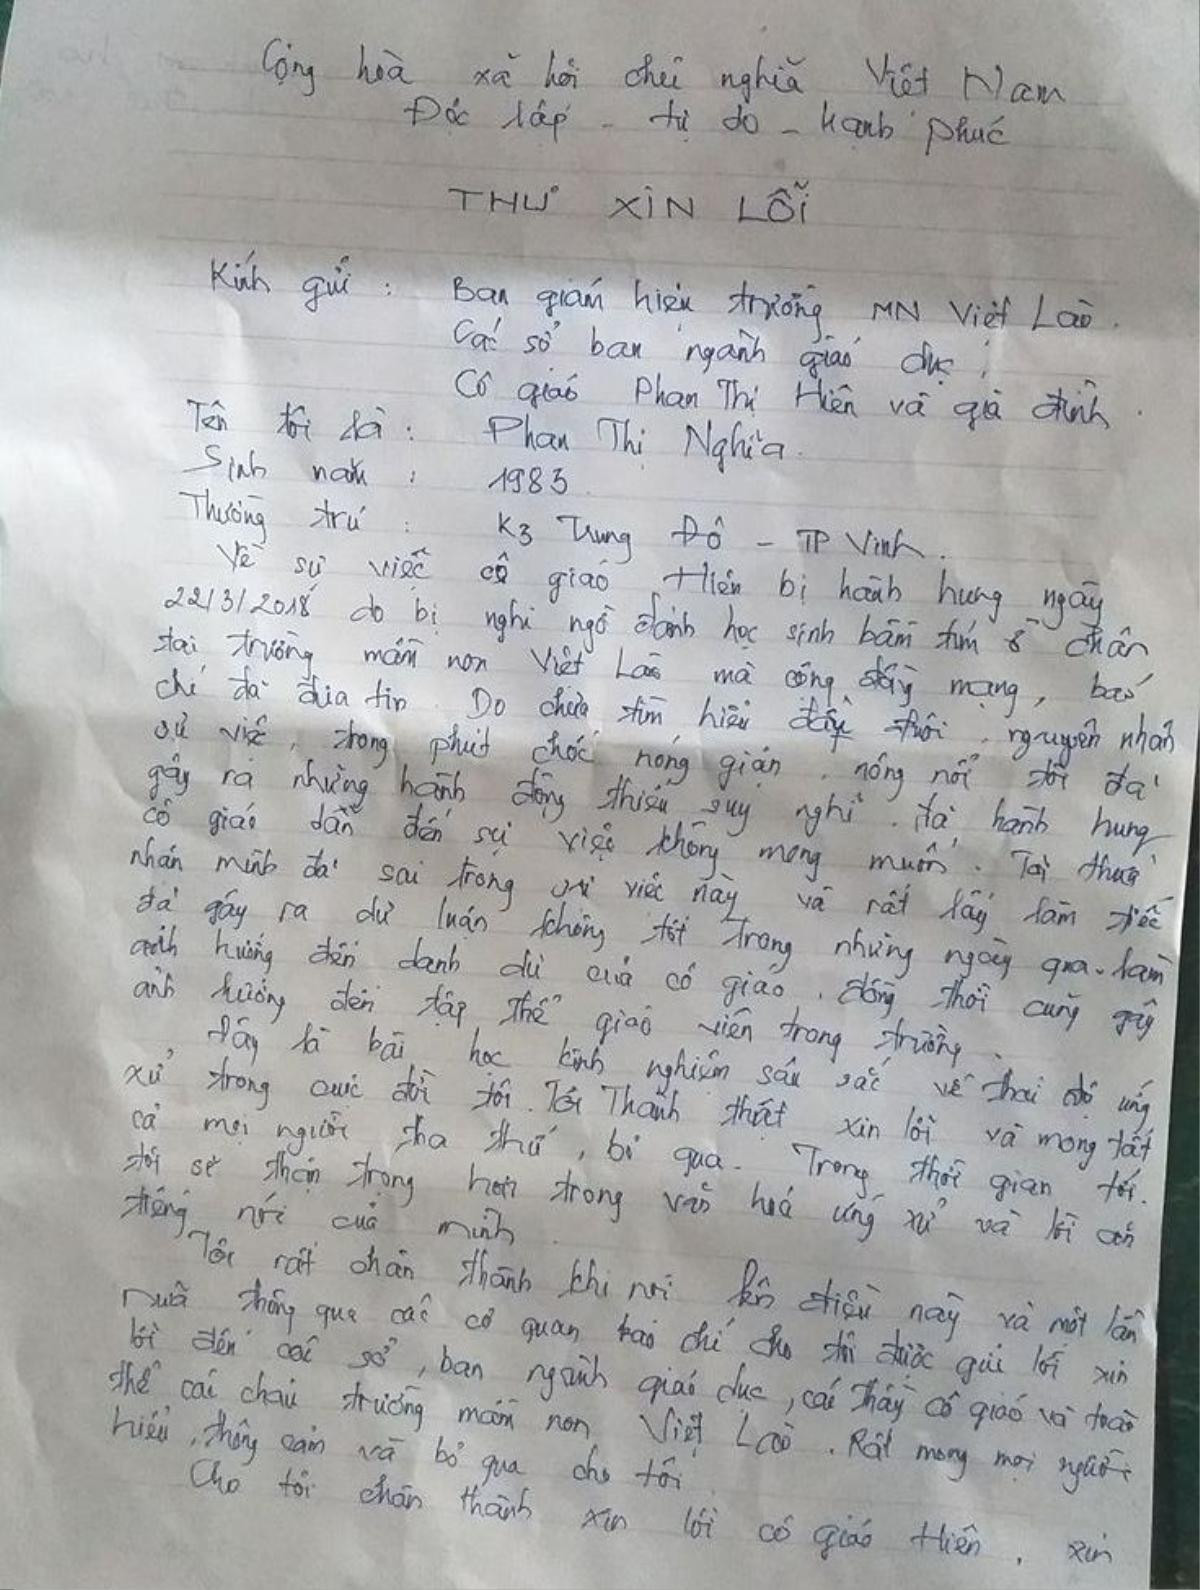 Cộng hoà xã hội chủ nghĩa Việt Nam
Độc lập - tự do - hạnh phúc
THƯ XIN LỖI
Kính gửi : Ban giám hiệu trường MN Việt Lào.
Các sở ban ngành giáo dục,
Cô giáo Phan Thị Hiền và gia đình.
Tên tôi là : Phan Thị Nghĩa.
Sinh năm : 1983.
Thường trú : K3 Trung Đô - TP Vinh.
Về sự việc cô giáo Hiền bị hành hung ngày
22/3/2018 do bị nghi ngờ đánh học sinh bầm tím ở chân
tại trường mầm non Việt Lào mà cộng đồng mạng, báo
chí đã đưa tin. Do chưa tìm hiểu đầy đuôi, nguyên nhân
sự việc, trong phút chốc nóng giận, nông nổi tôi đã
gây ra những hành động thiếu suy nghĩ, đã hành hung
cô giáo dẫn đến sự việc không mong muốn. Tôi thừa
nhận mình đã sai trong sự việc này và rất lấy làm tiếc
đã gây ra dư luận không tốt trong những ngày qua. Làm
ảnh hưởng đến danh dự của cô giáo, đồng thời cũng gây
ảnh hưởng đến tập thể giáo viên trong trường.
Đây là bài học kinh nghiệm sâu sắc về thái độ ứng
xử trong cuộc đời tôi. Tôi Thành thật xin lỗi và mong tất
cả mọi người tha thứ, bỏ qua. Trong thời gian tới.
tôi sẽ thận trọng hơn trong văn hoá ứng xử và lời ăn
tiếng nói của mình.
Tôi rất chân thành khi nói lên điều này và một lần
nữa thông qua các cơ quan báo chí cho tôi được gửi lời xin
lỗi đến các sở, ban ngành giáo dục, các thầy cô giáo và toàn
thể các cháu trường mầm non Việt Lào. Rất mong mọi người
hiểu, thông cảm và bỏ qua cho tôi.
Cho tôi chân thành xin lỗi cô giáo Hiền, xin